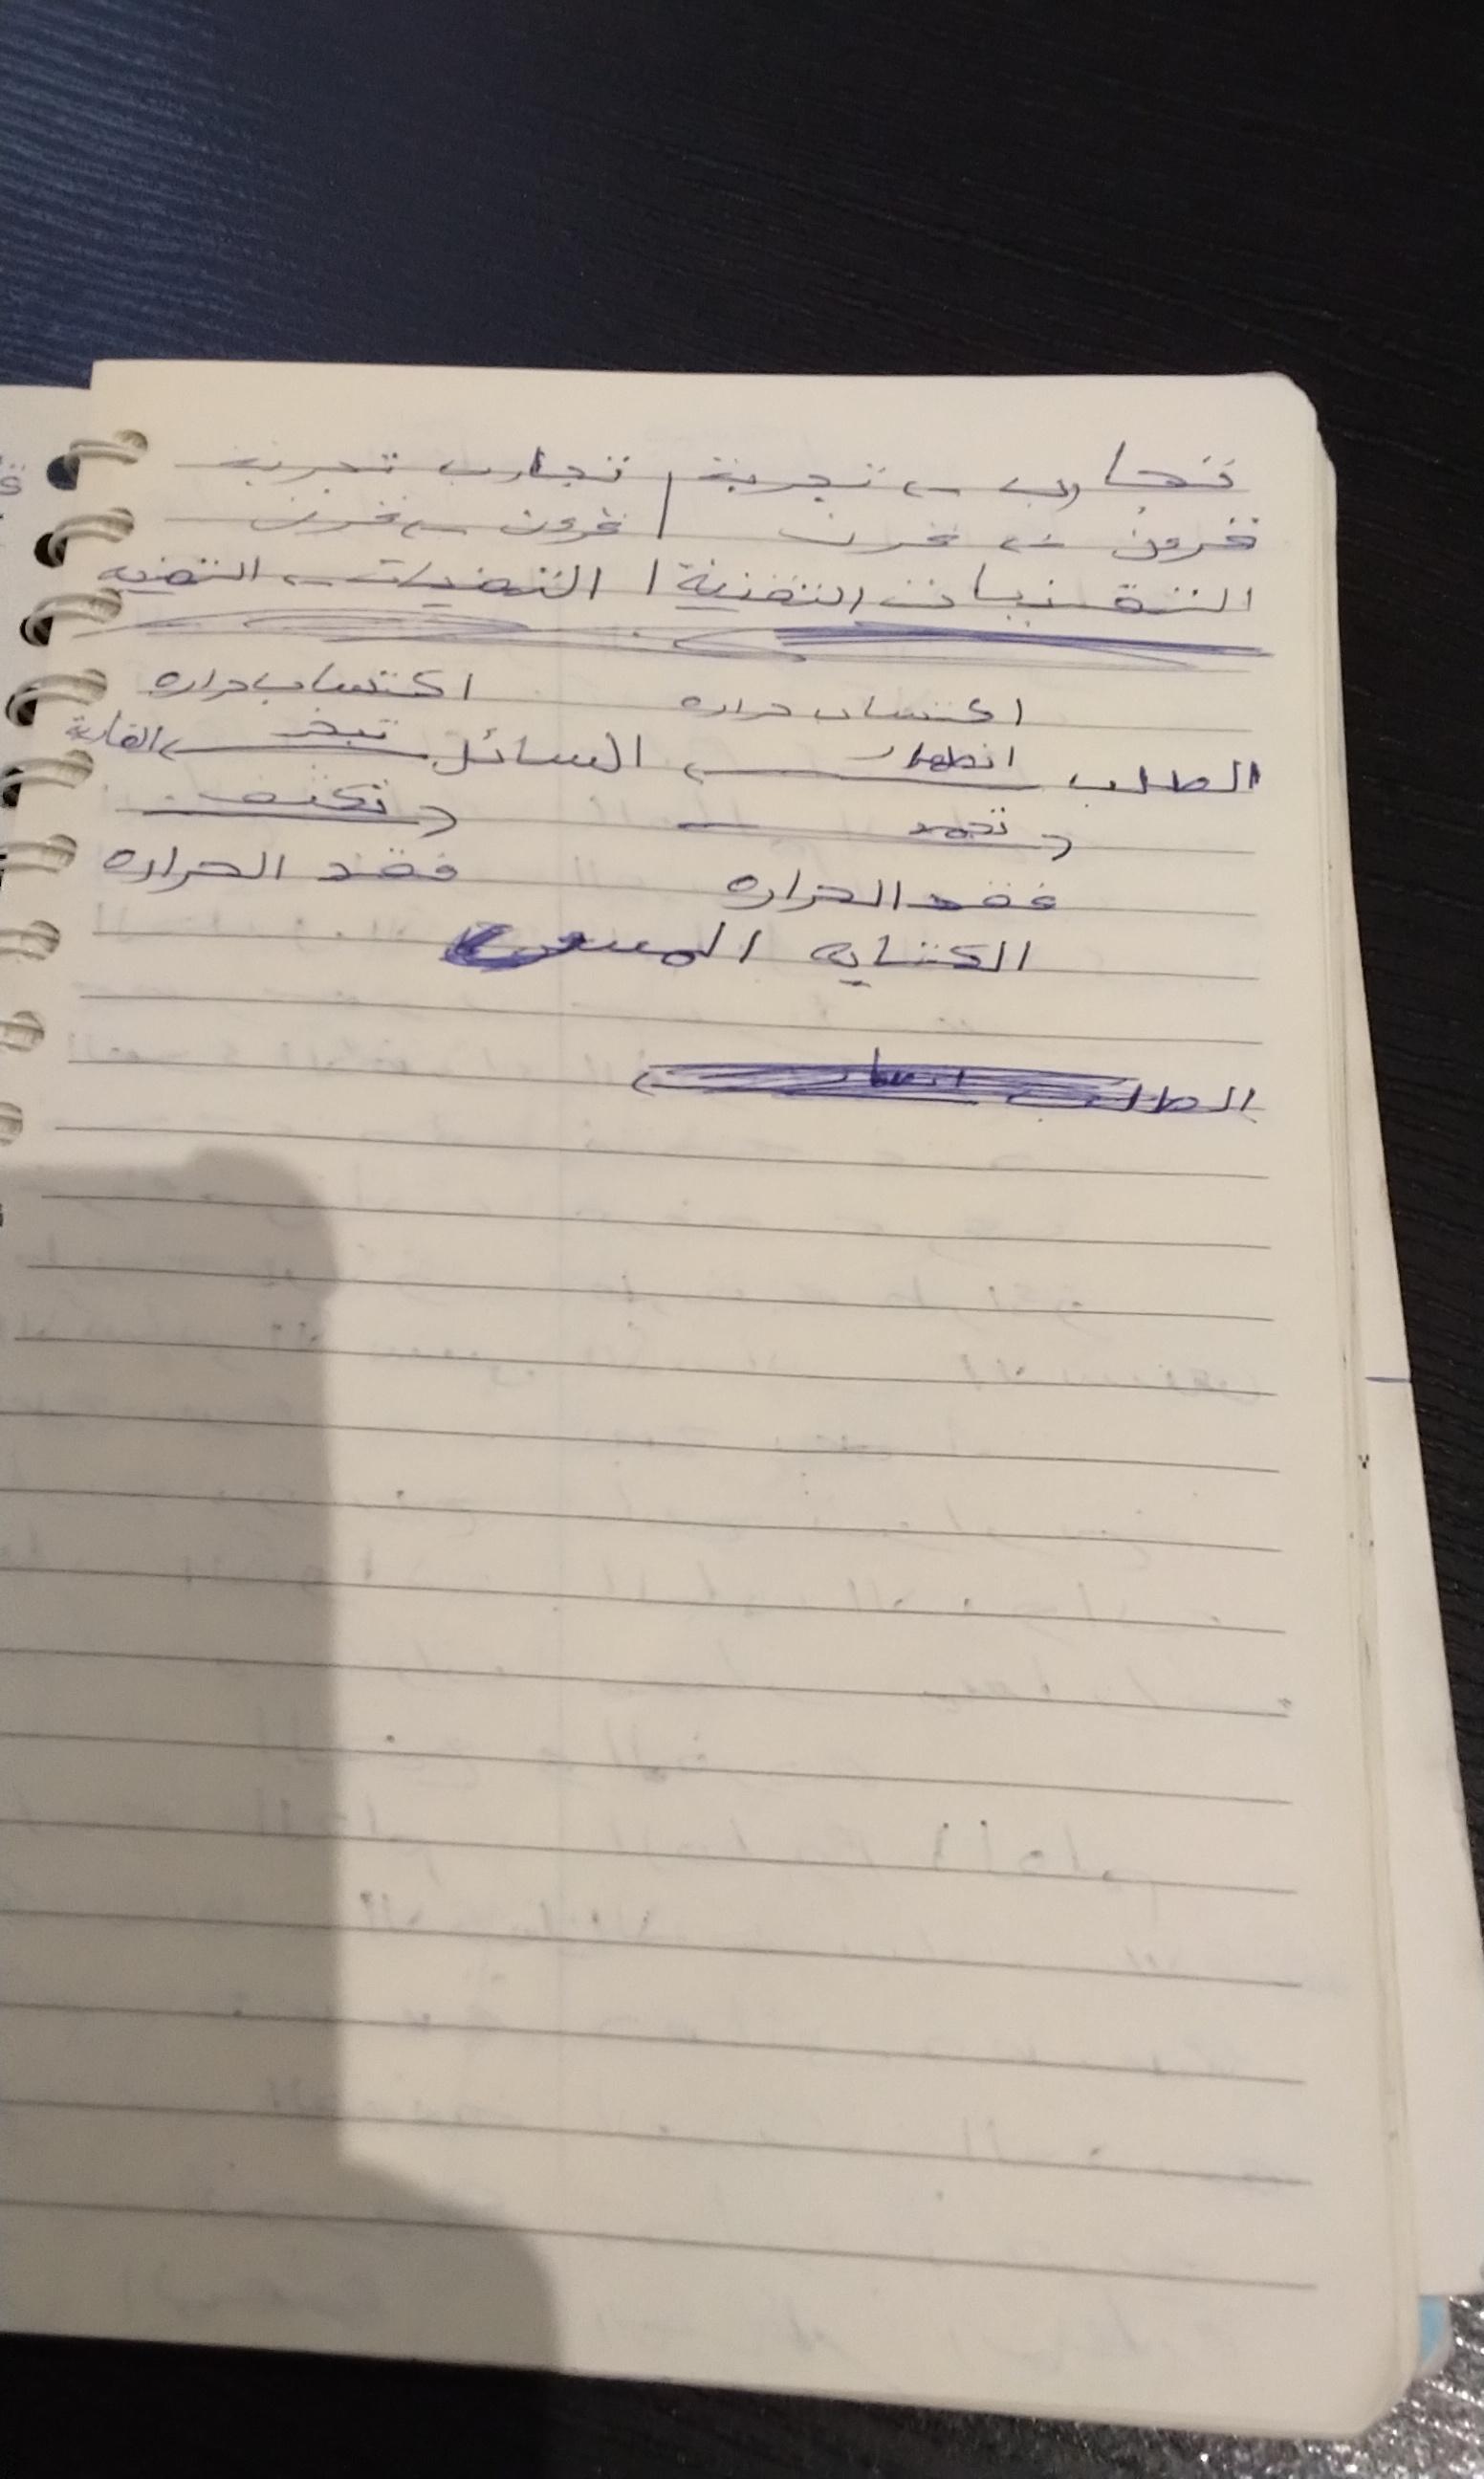 تجارب ← تجربة | تجارب تجربة
قرون ← قرن | قرون ← قرن
التقنيات التقنية | التقنيات ← التقنيه
اكتساب حراره اكتساب حراره
الطلب انصهار ← السائل تبخر ← الغازية
تجمد تكثف
فقد الحراره فقد الحراره
الكتابه
الطلب